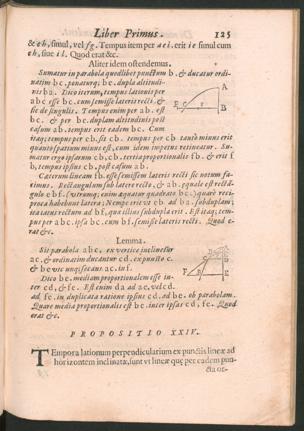 Liber Primus. 125
& eh, simul, vel fg. Tempus item per aei. erit ie simul cum
eh, siue il. Quod erat &c.
Aliter idem ostendemus.
Sumatur in parabola quodlibet punctum b. & ducatur ordi-
natim bc. ponaturq; be. dupla altitudi-
nis ba. Dico iterum, tempus lationis per
abc esse bc. cum semisse lateris recti, &
sic de singulis. Tempus enim per ab. est
bc. & per be. duplam altitudinis post
casum ab. tempus erit eadem bc. Cum
itaq; tempus per eb. sit cb. tempus per cb tantò minus erit
quantò spatium minus est, cum idem impetus retineatur. Su-
matur ergo ipsarum eb, cb. tertia proportionalis fb. & erit f
b, tempus ipsius cb, post casum ab.
Cæterum lineam fb. esse semissem lateris recti sic notum fa-
ciemus. Rectangulum sub latere recto, & ab, equale est rectā-
gulo ebf. (vtrumq; enim æquatur quadrato bc.) quare reci-
proca habebunt latera; Nempe erit vt eb ad ba. subduplam;
ita latus rectum ad bf, qua illius subdupla erit. Est itaq; tem-
pus per abc. ipsa bc. cum bf. semisse lateris recti. Quod e-
rat &c.
Lemma.
Sit parabola abc. ex vertice inclinetur
ac. & ordinatim ducantur cd. ex puncto c.
& be vtcunq; secans ac. in f.
Dico be. mediam proportionalem esse in-
ter cd, & fe. Est enim da ad ae. vel cd.
ad fe. in duplicata ratione ipsius cd. ad be. ob parabolam.
Quare media proportionalis est be. inter ipsas cd, fe. Quod
erat &c.
PROPOSITIO XXIV.
Tempora lationum perpendicularium ex punctis lineæ ad
horizontem inclinatæ, sunt vt lineæ quæ per eadem pun-
cta or-